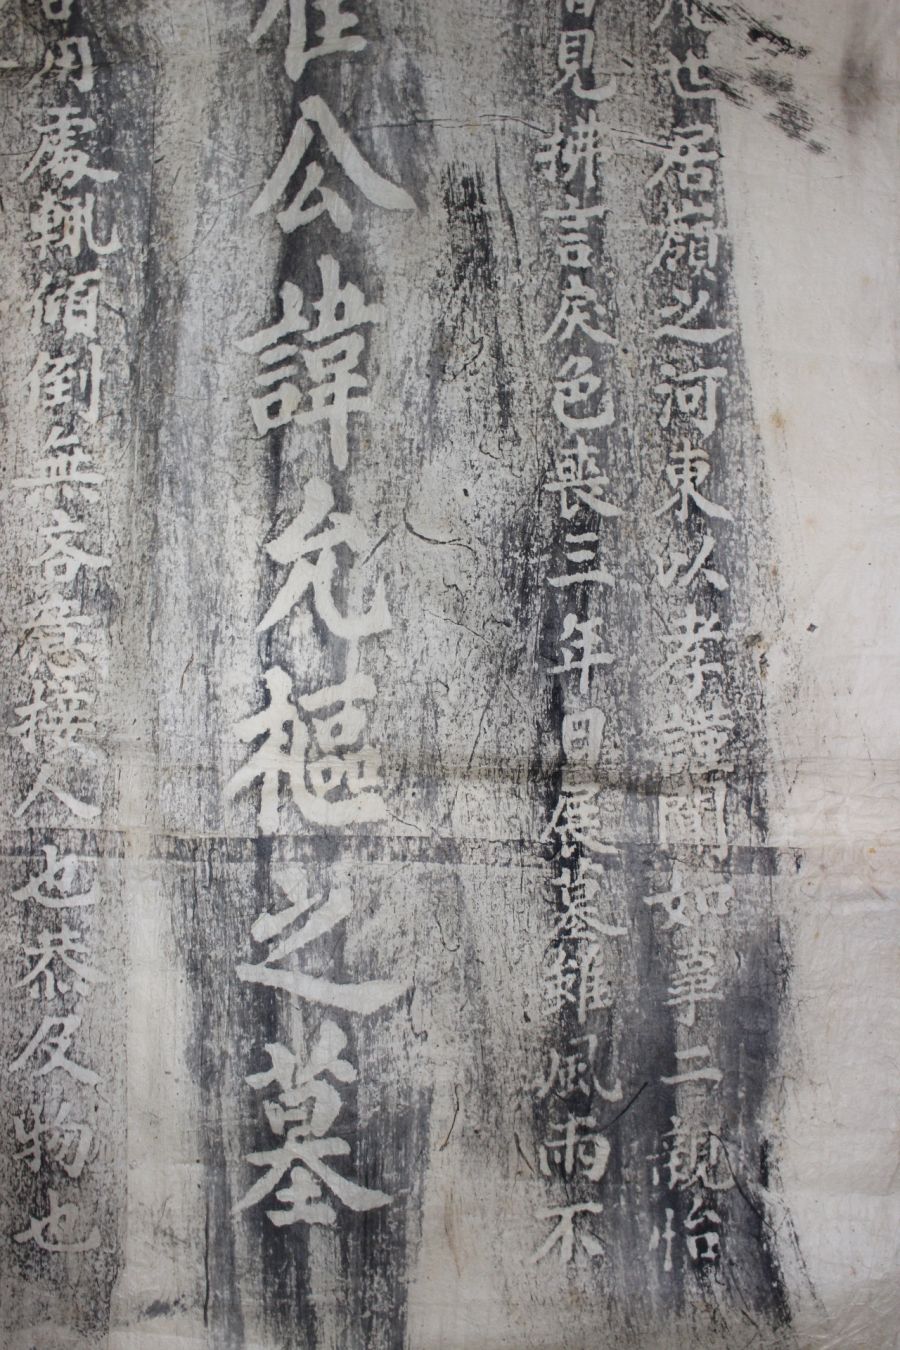 世居嶺之河東以孝謹聞如事二親怡
見拂言戾色喪三年日展墓雖風雨不
崔公諱允樞之墓
用處輒傾倒無吝意接人也恭及物也